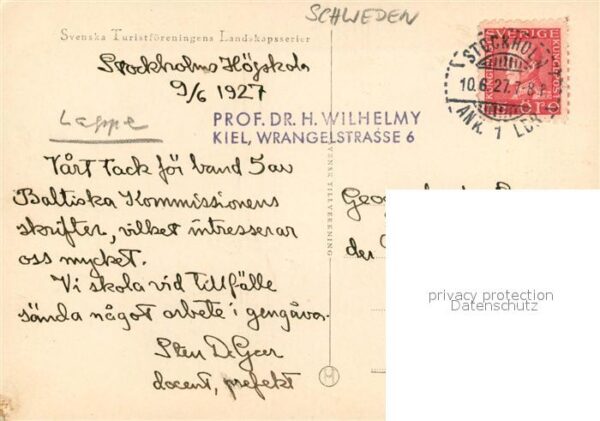 SCHWEDEN
Svenska Turistföreningens Landskapsserier
Stockholms Högskola
9/6 1927
Lappe
SVERIGE
STOCKHOLM
10.6.27.
ANK. 1
ÖRE
PROF. DR. H. WILHELMY
KIEL, WRANGELSTRASSE 6
SVENSK TILLVERKNING
Vårt tack för band 5 av
Baltiska Kommissionens
skrifter, vilket intresserar
oss mycket.
Vi skola vid tillfälle
sända något arbete i gengåva.
Sten De Geer
docent, prefekt
der
privacy protection
Datenschutz